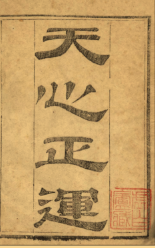 天心正運